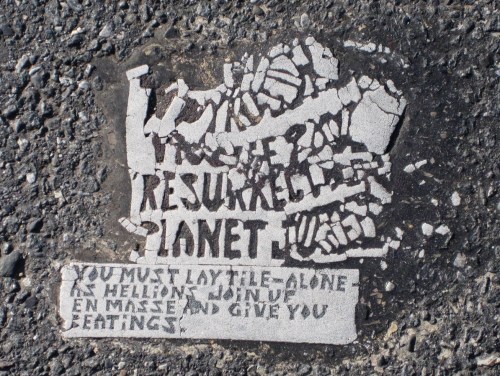 RESURREC
PLANET
YOU MUST LAY TILE-ALONE-
AS HELLIONS JOIN UP
EN MASSE AND GIVE YOU
BEATINGS.